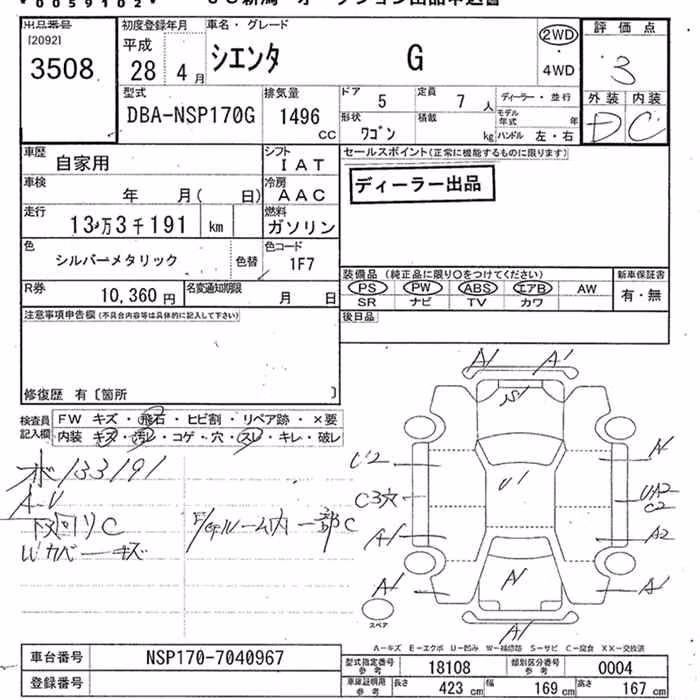 *0059102*
出品番号 [2092] 3508
初度登録年月 平成 28年 4月
車名・グレード シエンタ G
2WD ・ 4WD
評価点 3
外装 D 内装 C
型式 DBA-NSP170G
排気量 1496 CC
ドア 5 定員 7人
形状 ワゴン 積載 kg
ディーラー・並行
モデル年式 年
ハンドル 左・右
車歴 自家用
シフト IAT
セールスポイント(正常に機能するものに限ります)
ディーラー出品
車検 年 月( 日)
冷房 AAC
走行 13万3千191 km
燃料 ガソリン
色 シルバーメタリック 色替
色コード 1F7
装備品(純正品に限り○をつけてください) 新車保証書
PS PW ABS エアB AW 有・無
SR ナビ TV カワ
R券 10,360円
名変通知期限 月 日
後日品
注意事項申告欄(不具合内容等は具体的に記入して下さい)
修復歴 有〔箇所 〕
検査員記入欄
FW キズ・飛石・ヒビ割・リペア跡・×要
内装 キズ・汚レ・コゲ・穴・スレ・キレ・破レ
133191
A-U
下回りC
ルーム内一部C
Wカバーキズ
A1 A1
U2
U1
C3穴
UA2
C2
A1
A2
A1
A1
A1
スペア
A-キズ E-エクボ U-凹み W-補修跡 S-サビ C-腐食 XX-交換済
車台番号 NSP170-7040967
登録番号
型式指定番号 参考 18108
類別区分番号 参考 0004
車庫証明用 参考 長さ 423 cm 幅 169 cm 高さ 167 cm